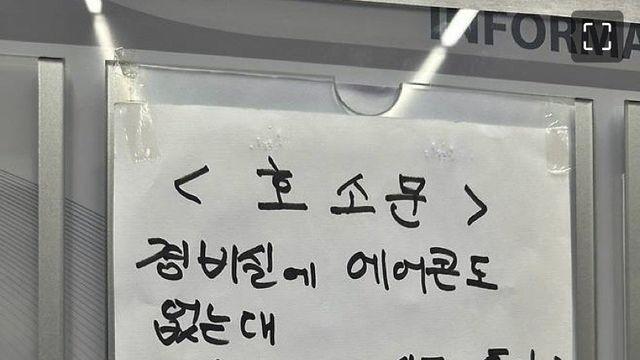 INFORMA
< 호소문 >
정비실에 에어콘도
없는대